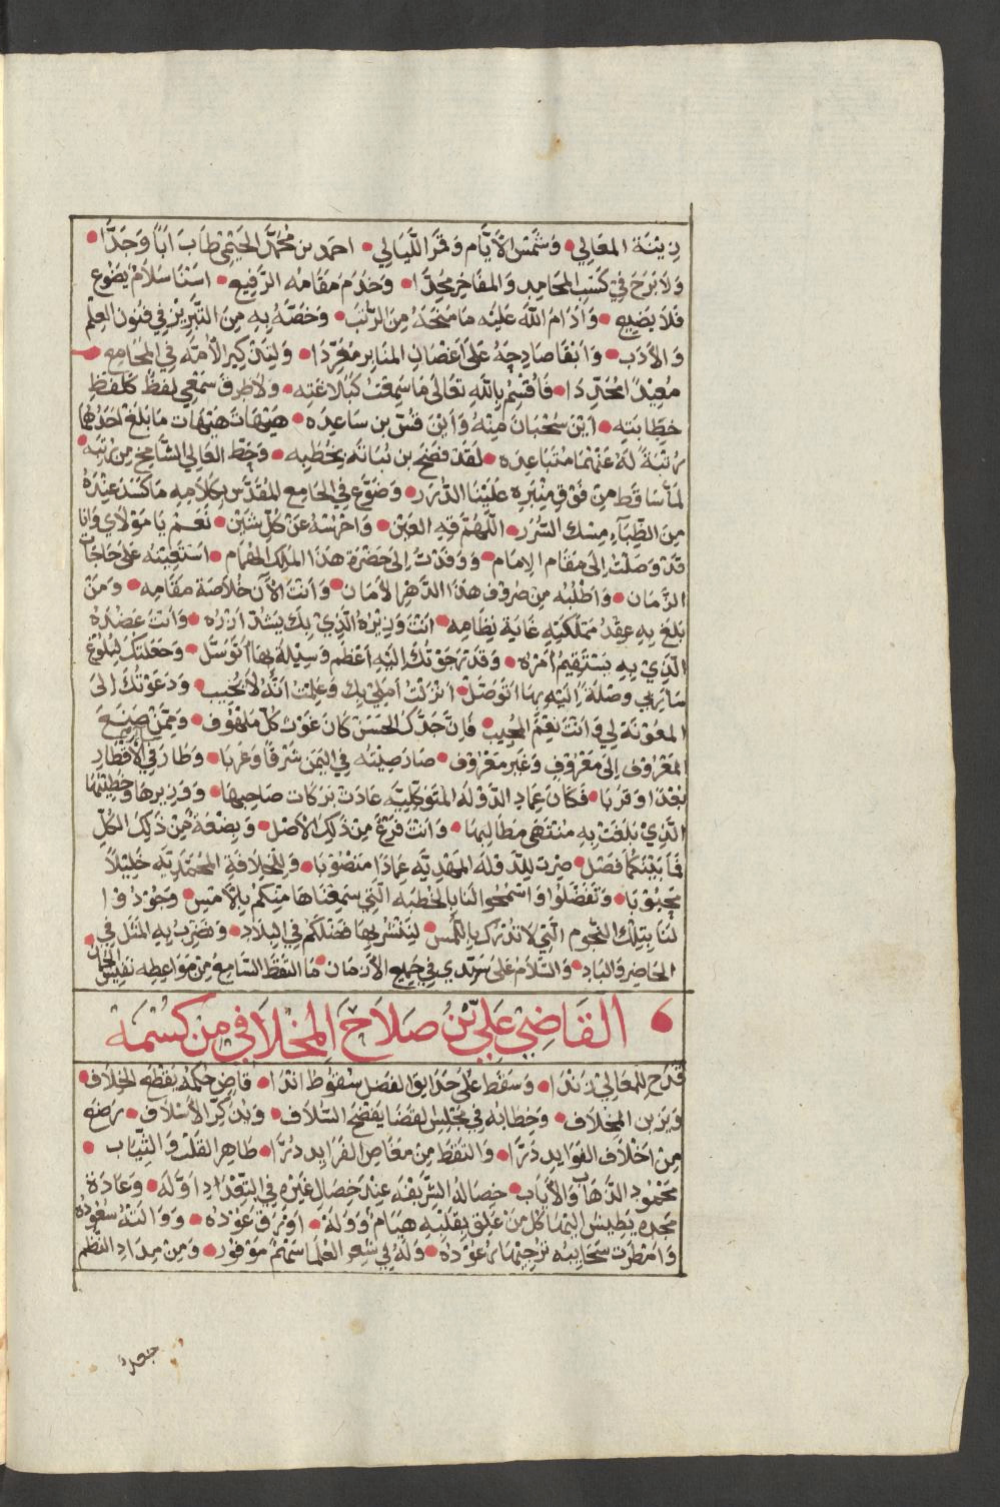 زينة المعالي • وشمس الأيام وقمر الليالي • احمد بن محمد الحيمي طاب ابا وجدا •
ولا برح في كسب المحامد والمفاخر مجدا • وخدم مقامه الرفيع • اسنا سلام يضوع
فلا يضيع • وادام الله عليه ما منحه من الرتب • وخصه به من التبريز في فنون العلم
والأدب • وابقا صادحه على اغصان المنابر مغردا • وليذكير الأمة في المجامع •
معيدا مجددا • فأقسم بالله تعالى ما سمعت كبلاغته • ولا طرق سمعي لفظ كلفظ
خطابته • اين سحبان منه واين قس بن ساعده • هيهات هيهات ما بلغ احدهما
رتبة له عنهما متباعده • لقد فضح بن نباته بخطبه • وحط العالي الشامخ من رتبه •
لما تساقط من فوق منبره علينا الدرر • وضوع في الجامع المقدس بكلامه ما كسد عنده
من الظباء مسك السرر • اللهم قه العين • واحرسه عن كل شين • نعم يا مولاي وانا
قد وصلت إلى مقام الإمام • ووفدت إلى حضرة هذا الملك الهمام • استعينه على حاجات
الزمان • واطلبه من صروف هذا الدهر الأمان • وانت الآن خلاصة مقامه • ومن
بلغ به عقد مملكته غاية نظامه • انت وزيره الذي بك يشد ازره • وانت عضده
الذي به يستقيم امره • وقد رجوتك اليه اعظم وسيلة بها اتوسل • وجعلتك لبلوغ
مأربي وصلة اليه بها اتوصل • انزلت املي بك وعلمت انه لا يخيب • ودعوتك الى
المعونة لي وانت نعم المجيب • فان جدك الحسن كان غوث كل ملهوف • وممن صنع
المعروف الى معروف وغير معروف • صار صيته في اليمن شرقا وغربا • وطار في الأقطار
بعدا وقربا • فكان عماد الدولة المتوكلية عادت بركات صاحبها • ووزيرها وخطيبها
الذي بلغت به منتهى مطالبها • وانت فرع من ذلك الأصل • وبضعة من ذلك الكل
فما بينكما فصل • صرت للدولة المهدية عمادا منصوبا • وللخلافة المحمدية خليلا
محبوبا • وتفضلوا واسمحوا لنا بالخطبه التي سمعناها منكم بالأمس • وجودوا
لنا بتلك النجوم التي لا تدرك باللمس • لينشر بها فضلكم في البلاد • ونضرب به المثل في •
الحاضر والباد • والسلام على سيدي في جميع الأزمان • ما التقط السامع من مواعظه نفيس الجمان
• القاضي علي بن صلاح المخلافي من كسمة
قدح للمعالي زندا • وسقط على حدايق الفضل سقوط اندا • قاض حكمه يقطع الخلاف •
ويزين المخلاف • وخطابه في مجلس القضا يفضح السلاف • ويذكر الأسلاف • رضع
من اخلاف الفوايد درا • والتقط من مغاص الفرايد درا • طاهر القلب والثياب •
محمود الذهاب والأياب • خصاله الشريفه عند خصال غيره في التعداد اوله • وعادة
مجده يطيش اليها كل من علق بقلبه هيام ووله • اورق عوده • ووالته سعوده
وامطرت سحايبه ترجيها رعوده • وله في شعر العلما سهم موفور • ومن مداد النظم